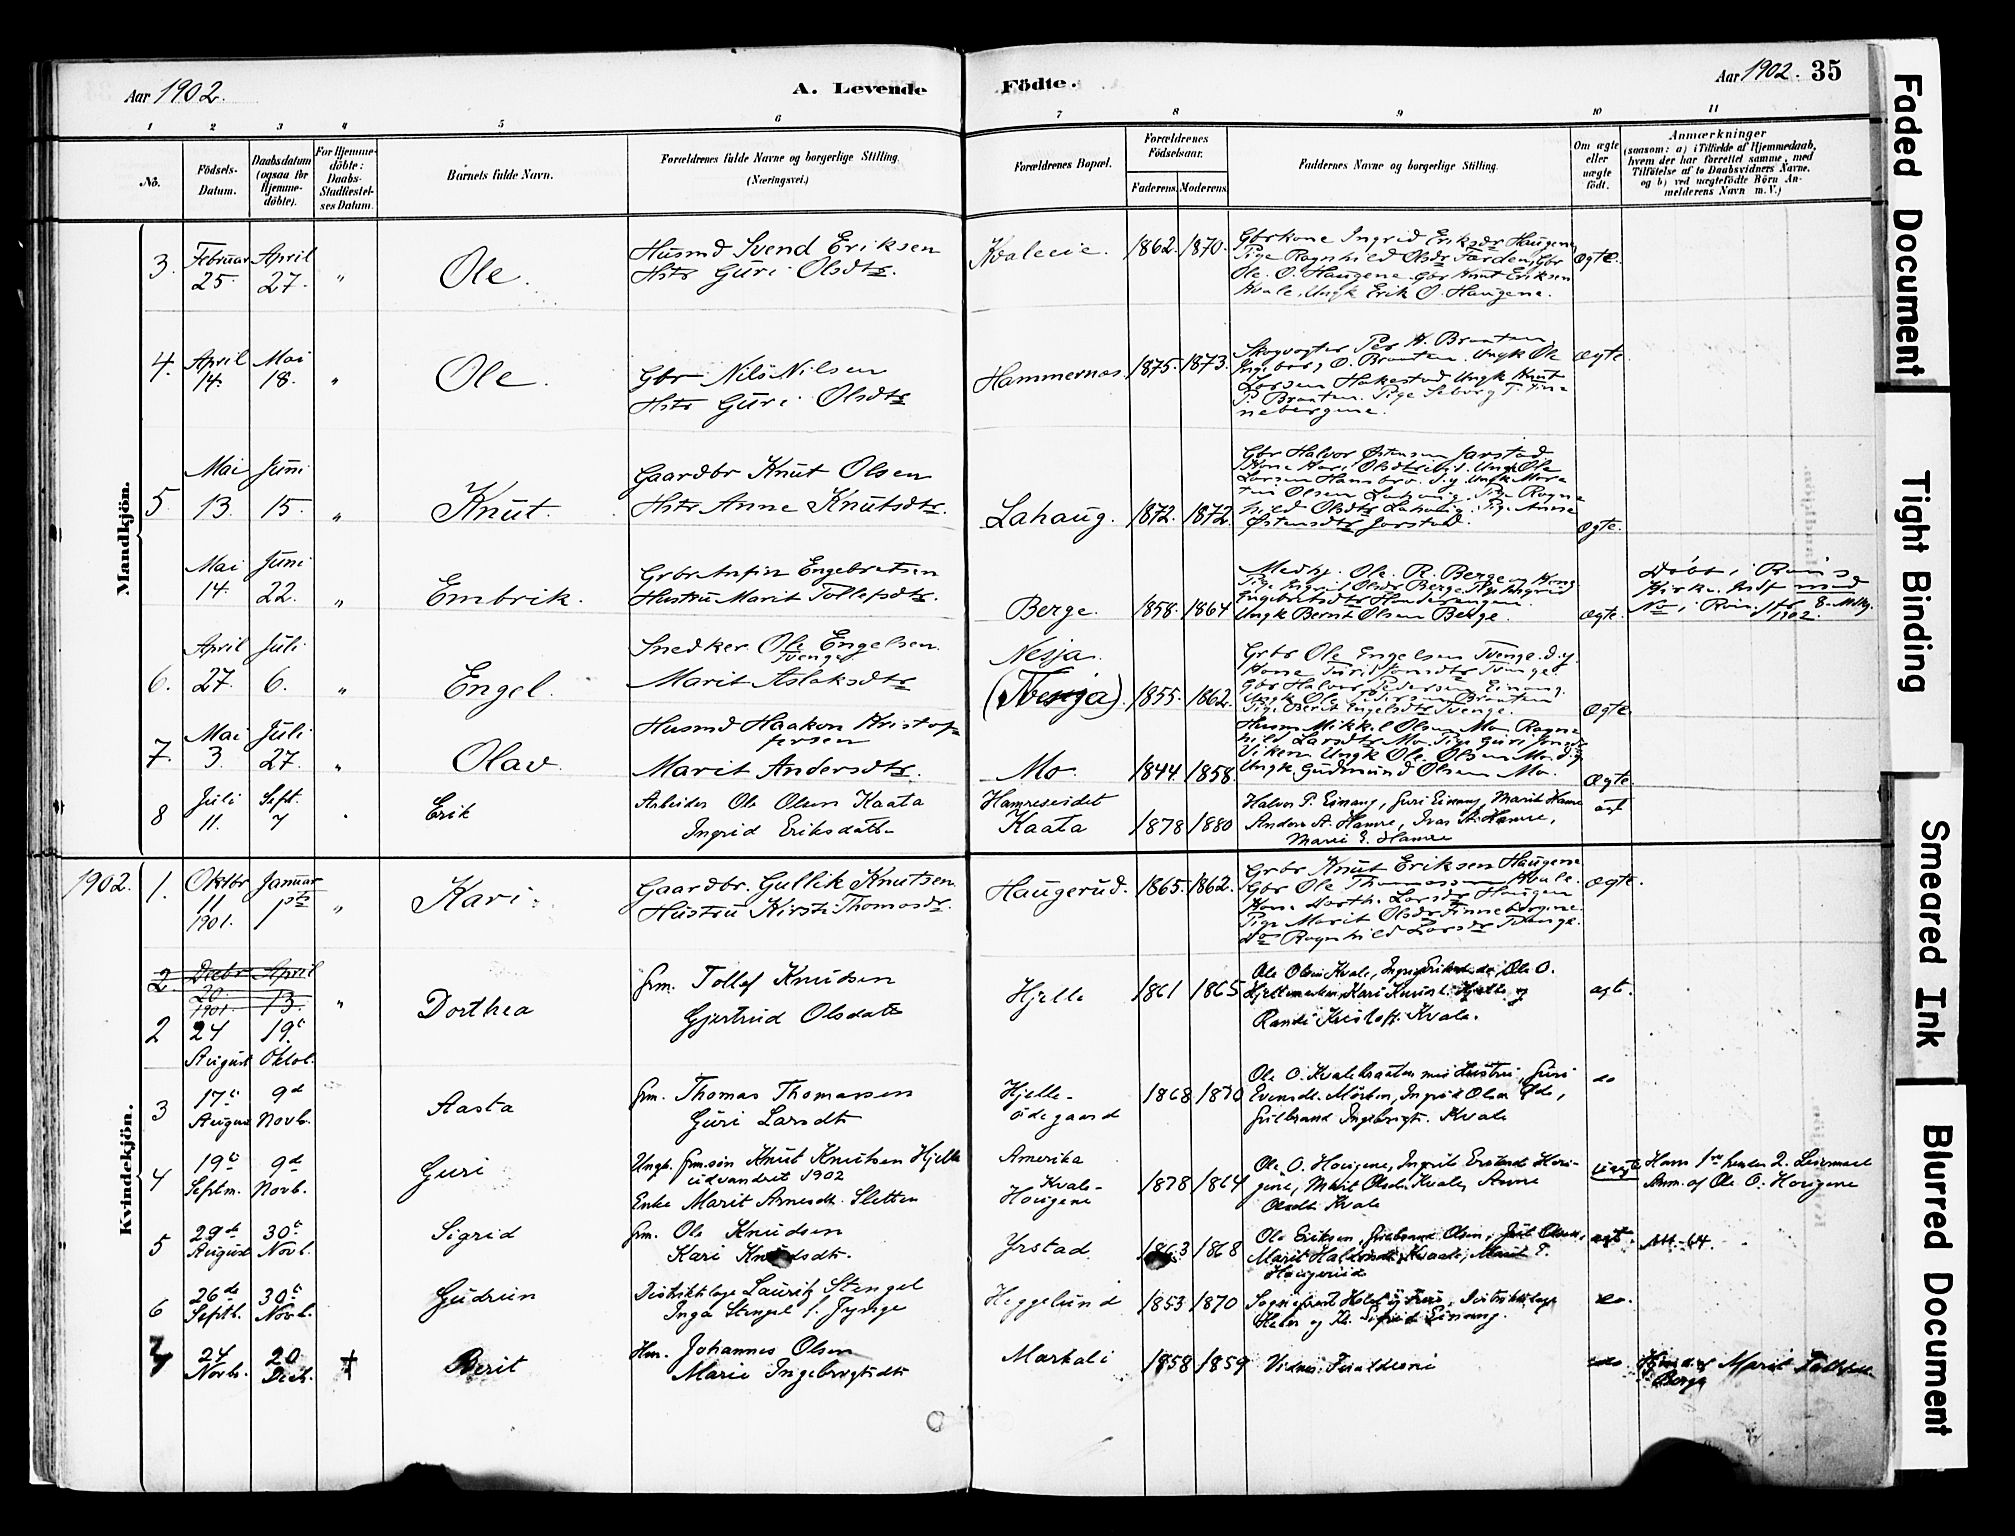 Aar 1902.
A. Levende
Födte.
Aar 1902. 35
1 2 3 4 5 6 7 8 9 10 11
No.
Födsels-
Datum.
Daabsdatum
(ogsaa for
Hjemme-
döbte).
For Hjemme-
döbte:
Daabs-
Stadfæstel-
ses Datum.
Barnets fulde Navn.
Forældrenes fulde Navne og borgerlige Stilling.
(Næringsvei.)
Forældrenes Bopæl.
Forældrenes
Födselsaar.
Faderens. Moderens.
Faddernes Navne og borgerlige Stilling.
Om ægte
eller
uægte
födt.
Anmærkninger
(saasom: a) i Tilfælde af Hjemmedaab,
hvem der har forrettet samme, med
Tilföielse af to Daabsvidners Navne,
og b) ved uægtefödte Börn An-
melderens Navn m. V.)
Mandkjön.
3. Februar 25. April 27. "
Ole.
Husmd Svend Eriksen
Hstr Guri Olsdtr.
Kvaleeie. 1862. 1870.
Gbrkone Ingrid Eriksdr Haugene
Pige Ragnhild Olsdr Færden, Gbr
Ole. O. Haugene. Gbr Knut Eriksen
Kvale, Ungk Erik O. Haugene.
ægte.
4. April 14. Mai 18. "
Ole.
Gbr Nils Nilsen
Hstr Guri Olsdtr
Hammernæs. 1875. 1873.
Skogvogter Per H. Braaten,
Ingeborg O. Braaten. Ungk Ole
Larsen Hakestad, Ungk Knut
P. Braaten. Pige Seborg T. Fin-
nebergene.
ægte.
5. Mai 13. Juni 15. "
Knut.
Gaardbr Knut Olsen
Hstr Anne Knutsdtr.
Lahaug. 1872. 1872.
Gbr Halvor Østensen Jarstad
Kone Kari Olsdtr ibid. Ungk Ole
Larsen Hansbro. d.y. Ungk Mor-
ten Olsen Lahaug. Pige Ragn-
hild Olsdtr Lahaug. Pige Anne
Østensdtr Jarstad.
ægte.
Mai 14. Juni 22. "
Embrik.
Grbr Anfin Engebretsen
Hustru Marit Tollefsdtr.
Berge. 1858. 1864
Medhj. Ole. R. Berge og Kone
Pige Ingrid Olsdr Berge. Pige Ingrid
Engebretsdtr
Ungk Bernt Olsen Berge.
ægte.
Døbt i
Kirke.
No i 1902.
6. April 27. Juli 6. "
Engel.
Snedker Ole Engelsen
Tvenge
Marit Aslaksdtr
Nesja.
(Tvenja). 1855. 1862.
Grbr Ole Engelsen Tvenge. d.y.
Kone Turid Tvenge.
Gbr Halvor Pedersen Einang.
Ungk Ole Pedersen Braaten
Pige Berit Engelsdtr Tvenge.
ægte.
7. Mai 3. Juli 27. "
Olav.
Husmd Haakon Kristof-
fersen
Marit Andersdtr.
Mo. 1844. 1858.
Husm Mikkel Olsen Mo. Ragn-
hild Larsdtr Mo. Pige Guri
Viken. Ungk Ole. Olsen Mo. d.y
Ungk Gudmund Olsen Mo.
ægte.
8 Juli 11. Sept. 7 "
Erik
Arbeider Ole Olsen Kaata
Ingrid Eriksdatt.
Hamreseidet
Kaata 1878 1880
Halvor P. Einang, Guri Einang, Marit Hamre
Anders A. Hamre, Ivar A. Hamre,
Marie E. Hamre
ægt
Kvindekjön.
1902. 1. Oktbr 11 1901. Januar 1ste "
Kari.
Gaardbr. Gullik Knutsen
Hustru Kirsti Thomasdr.
Haugerud. 1865. 1862.
Grbr Knut Eriksen Haugene
Gbr Ole Thomassen Kvale.
Kone Dorth. Larsdtr Haugen
Pige Marit Olsdr Finnebergene
do Ragnhild Larsdr Tvenge.
ægte.
2 Decbr 20. 1901. April 13. "
2 24 August 19e Oktob.
Dorthea
Grm. Tollef Knudsen
Gjertrud Olsdatt.
Hjelle 1861 1865
Ole Olsen Kvale, Ole O.
Kari Hjelle og
Randi Kristoff. Kvale.
ægt.
3 17e August 9de Novb.
Aasta
Grm. Thomas Thomassen
Guri Larsdtr
Hjelle-
ødegaard 1868 1870
Ole O. Kvalebraaten med Hustru, Guri
Evensdt. Morken, Ingrid Olsen Øde,
Gulbrand Ingebrigts. Kvale
do
4 19e Septm. 9de Novb.
Guri
Ungk. Grm.søn Knut Knutsen Hjelle
udvandret 1902
Enke Marit Arnesdt. Sletten
Amerika
Kvale-
Hougene 1878 1864
Ole O. Hougene, Ingrid Hou-
gene, Marit Olsdt. Kvale, Anne
Olsdt. Kvale
uægte
Hans 1ste hendes 2. Leiermaal
Anm. af Ole O. Hougene
5 29de August 30e Novb.
Sigrid
Grm. Ole Knudsen
Kari Knudsdtr.
Yrstad. 1863 1868
Ole Eriksen, Gulbrand Olsen,
Marit Kvale, Marit T.
Haugerud
ægt.
6 26de Septb. 30e Novb.
Gudrun
Distriktslæge Lauritz Stengel
Inga Stengel f. Tynge
Heggelund 1853 1870
Sogneprest Holst og Frue, Distriktslæge
og Fr. Sigrid Einang.
do.
7 24 Novb. 20 Decb. †
Berit
Hm. Johannes Olsen
Marie Ingebrigtsdtr
Markali 1858 1859
Vidner: Forældrene
do
Hjmd. af Marit
Berge
Faded Document
Tight Binding
Smeared Ink
Blurred Document